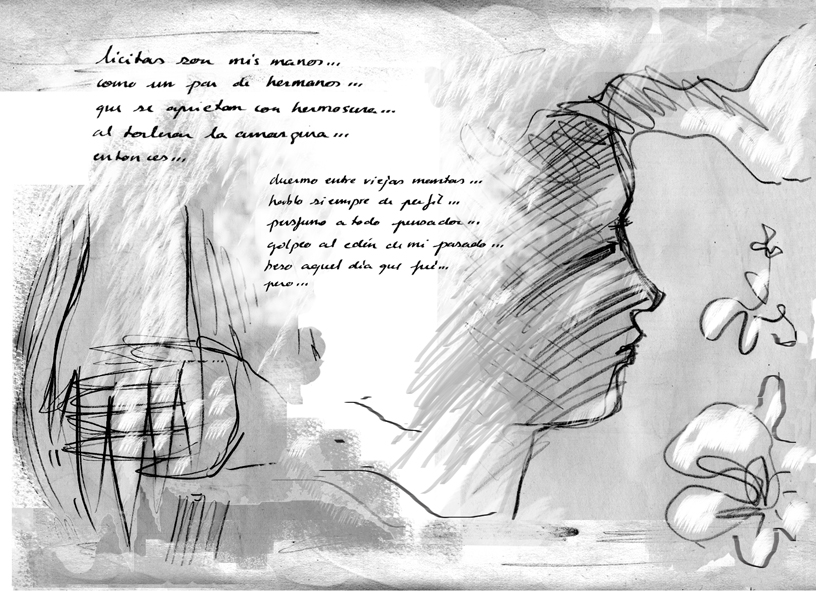 licitas son mis manos...
como un par de hermanos...
que se aprietan con hermosura...
al tolerar la amargura...
entonces...
duermo entre viejas mantas...
hablo siempre de perfil...
perfumo a todo pensador...
golpeo al edén de mi pasado...
beso aquel día que fui...
pero...